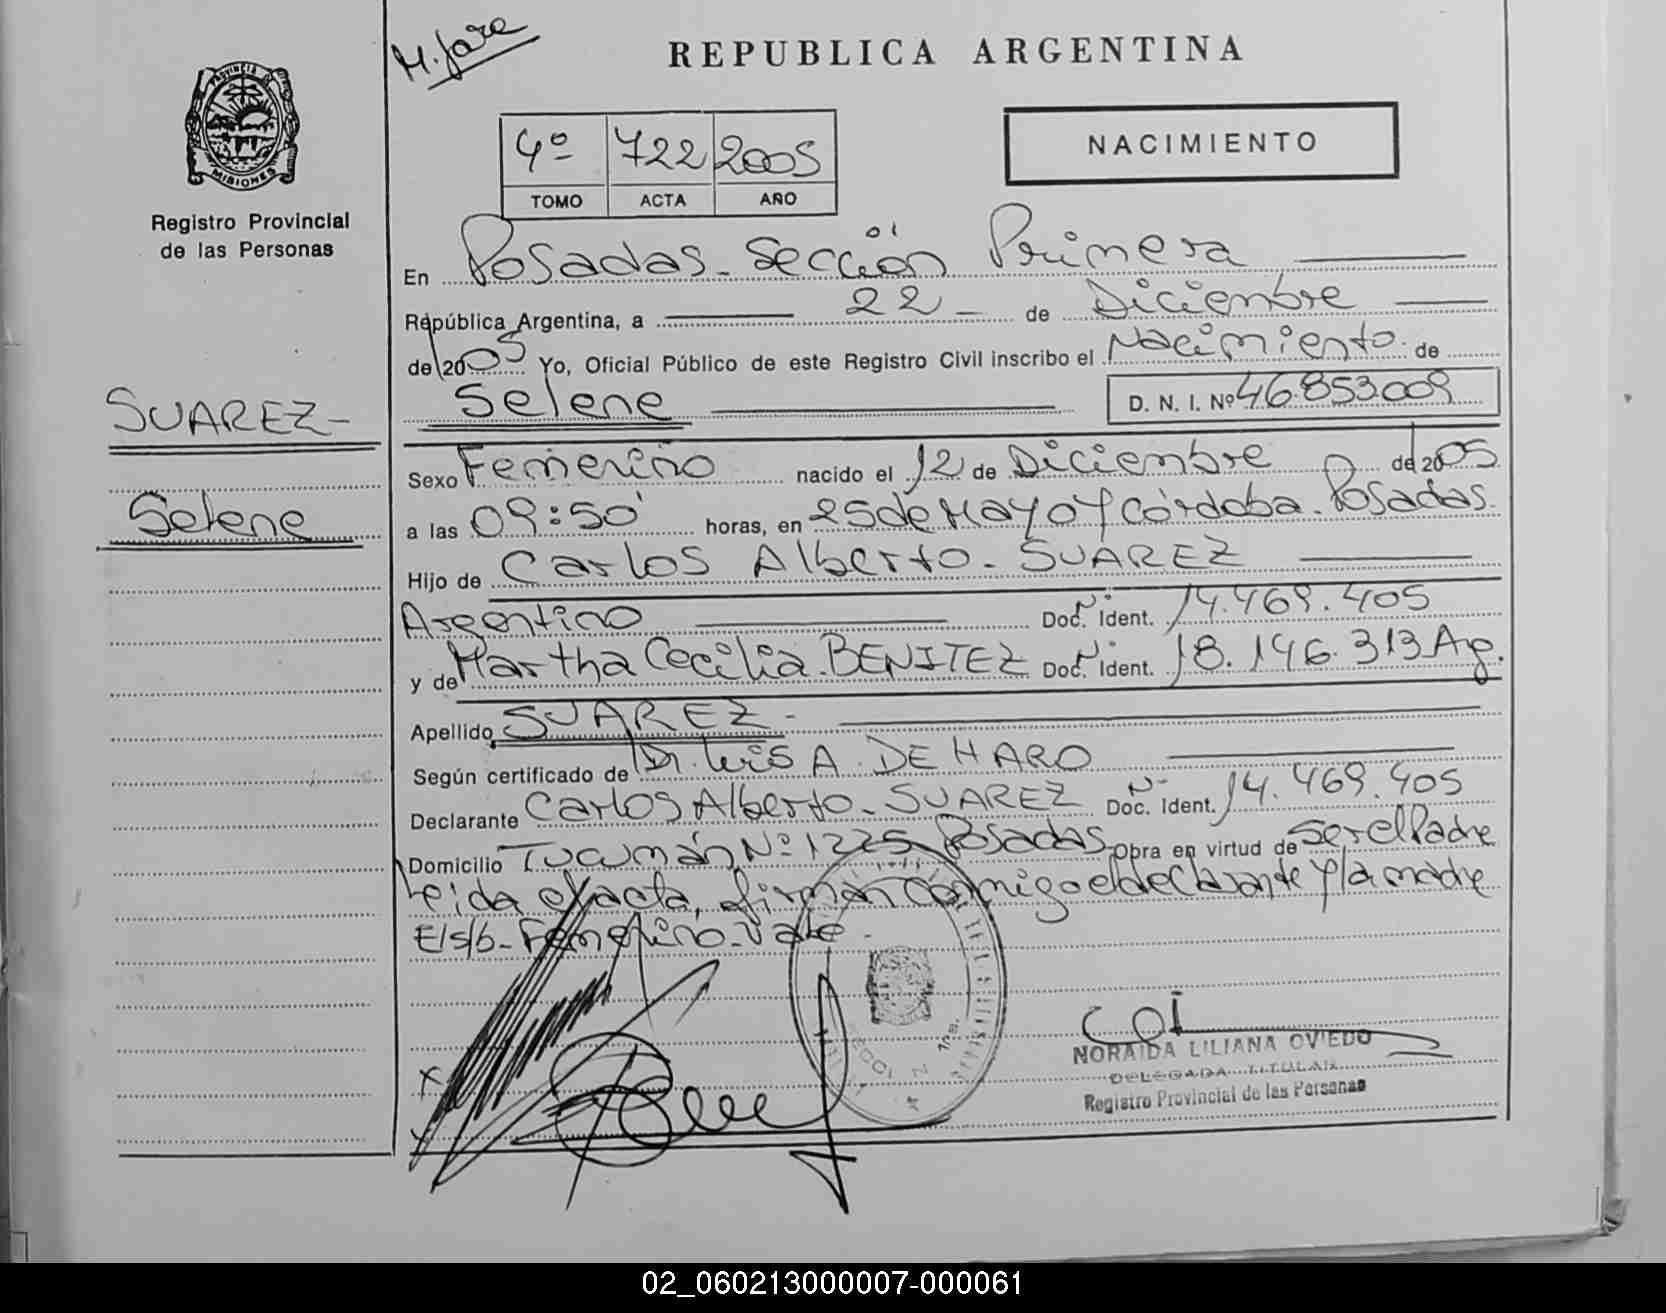 M. Jare
REPUBLICA ARGENTINA
PROVINCIA DE
MISIONES
Registro Provincial
de las Personas
4º 722 2005
TOMO ACTA AÑO
NACIMIENTO
En Posadas - Sección Primera
República Argentina, a 22 - de Diciembre
de 2005 Yo, Oficial Público de este Registro Civil inscribo el Nacimiento de
Selene D. N. I. Nº 46.853.009
SUAREZ-
Selene
Sexo Femenino nacido el 12 de Diciembre de 2005
a las 09:50' horas, en 25 de Mayo y Córdoba. Posadas.
Hijo de Carlos Alberto - SUAREZ
Argentino Doc. Ident. Nº 14.469.405
y de Martha Cecilia BENITEZ Doc. Ident. Nº 18.146.313 Ag.
Apellido SUAREZ -
Según certificado de Dr. Luis A. DE HARO
Declarante Carlos Alberto - SUAREZ Doc. Ident. Nº 14.469.405
Domicilio Tucumán Nº 1225 Posadas obra en virtud de Ser el Padre
Leida el acta, firman conmigo el declarante y la madre
E/s/b - Femenino - Vale -
NORAIDA LILIANA OVIEDO
DELEGADA TITULAR
Registro Provincial de las Personas
02_060213000007-000061